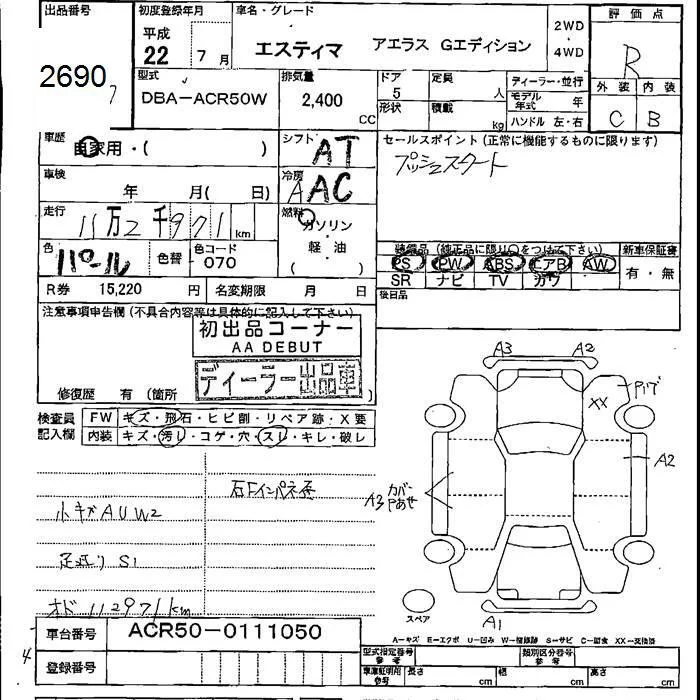 出品番号 初度登録年月 車名・グレード 評価点
平成 22 7月 エスティマ アエラス Gエディション 2WD・4WD R
2690
型式 排気量 ドア 定員 ディーラー・並行 外装 内装
DBA-ACR50W 2,400 CC 5 人 モデル年式 年 C B
形状 積載 kg ハンドル 左・右
車歴 自家用・( ) シフト AT セールスポイント(正常に機能するものに限ります)
プッシュスタート
車検 年 月( 日) 冷房 AAC
走行 11万2千971km 燃料 ガソリン・軽油 ( )
色 パール 色替 色コード 070
装備品(純正品に限り○をつけて下さい) 新車保証書
PS PW ABS エアB AW 有・無
SR ナビ TV カワ
R券 15,220 円 名変期限 月 日 後日品
注意事項申告欄(不具合内容等は具体的に記入して下さい)
初出品コーナー
AA DEBUT
ディーラー出品車
修復歴 有 (箇所
検査員記入欄 FW キズ・飛石・ヒビ割・リペア跡・X要
内装 キズ・汚レ・コゲ・穴・スレ・キレ・破レ
A3 A2
XX
A2
A3 カバー
小キズAUW2
S1
オド 112971km
スペア A1
A-キズ E-エクボ U-凹み W-補修跡 S-サビ C-腐食 XX-交換済
車台番号 ACR50-0111050
型式指定番号 参考 類別区分番号 参考
登録番号
車庫証明用 参考 長さ cm 幅 cm 高さ cm
4